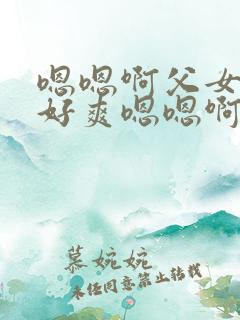 嗯嗯啊父女
好爽嗯嗯啊
慕婉婉
未经同意禁止转载